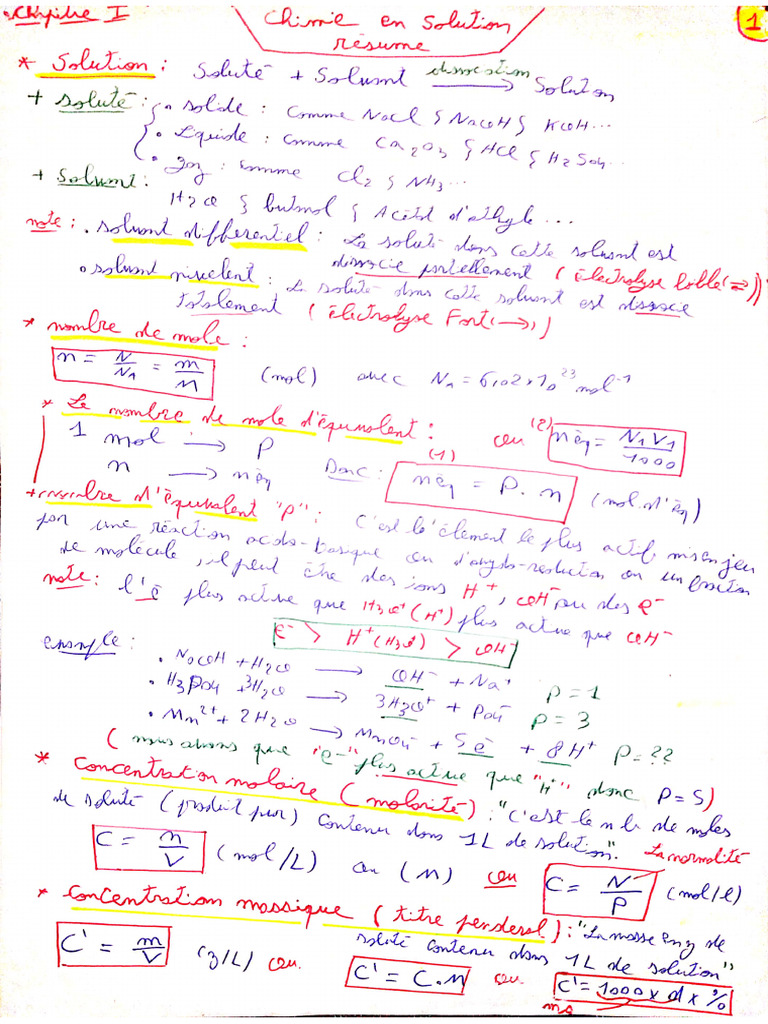 Chapitre I
Chimie en solution
résumé
1
* Solution : Soluté + Solvant dissociation ⟶ Solution
+ soluté : • solide : comme NaCl ; NaOH ; KOH...
• Liquide : comme Ca2O3 ; HCl ; H2SO4...
• gaz : comme Cl2 ; NH3...
+ Solvant :
H2O ; butanol ; Acétate d'athyle...
note : • solvant differentiel : La soluté dans cette solvant est
dissocie partellement (électrolyse faible (⇌))
• solvant nivelent : La soluté dans cette solvant est dissocie
totalement (électrolyse Fort (→))
* nombre de mole :
n = N/NA = m/M (mol) avec NA = 6,02 x 10^23 mol^-1
* Le nombre de mole d'équivalent :
1 mol ⟶ P ou (2) néq = N1V1/1000
n ⟶ néq Donc : (1) néq = P. n (mol.d'éq)
+ nombre d'équivalent "p" : C'est le élement le plus actif mis en jeu
par une réaction acido-basique ou d'oxydo-reduction ou un
de molécule, il peut être des ions H+, OH- ou des e-
note : l'e plus active que H3O+ (H+) plus active que OH-
e- > H+(H3O+) > OH-
exemple :
• NaOH + H2O ⟶ OH- + Na+ P = 1
• H3PO4 + 3H2O ⟶ 3H3O+ + PO4- P = 3
• Mn2+ + 2H2O ⟶ MnO4- + 5e- + 8H+ P = ??
(nous avons que "e-" plus active que "H+" donc P = 5)
* Concentration molaire (molarité) : "C'est le nb de moles
de soluté (produit pur) contenu dans 1L de solution".
La normalité
C = n/V (mol/L) ou (M) ou C = N/P (mol/l)
* Concentration massique (titre penderal) : "La masse en g de
soluté contenu dans 1L de solution"
C' = m/V (g/L) ou C' = C.M ou C' = 1000 x d x %
ms